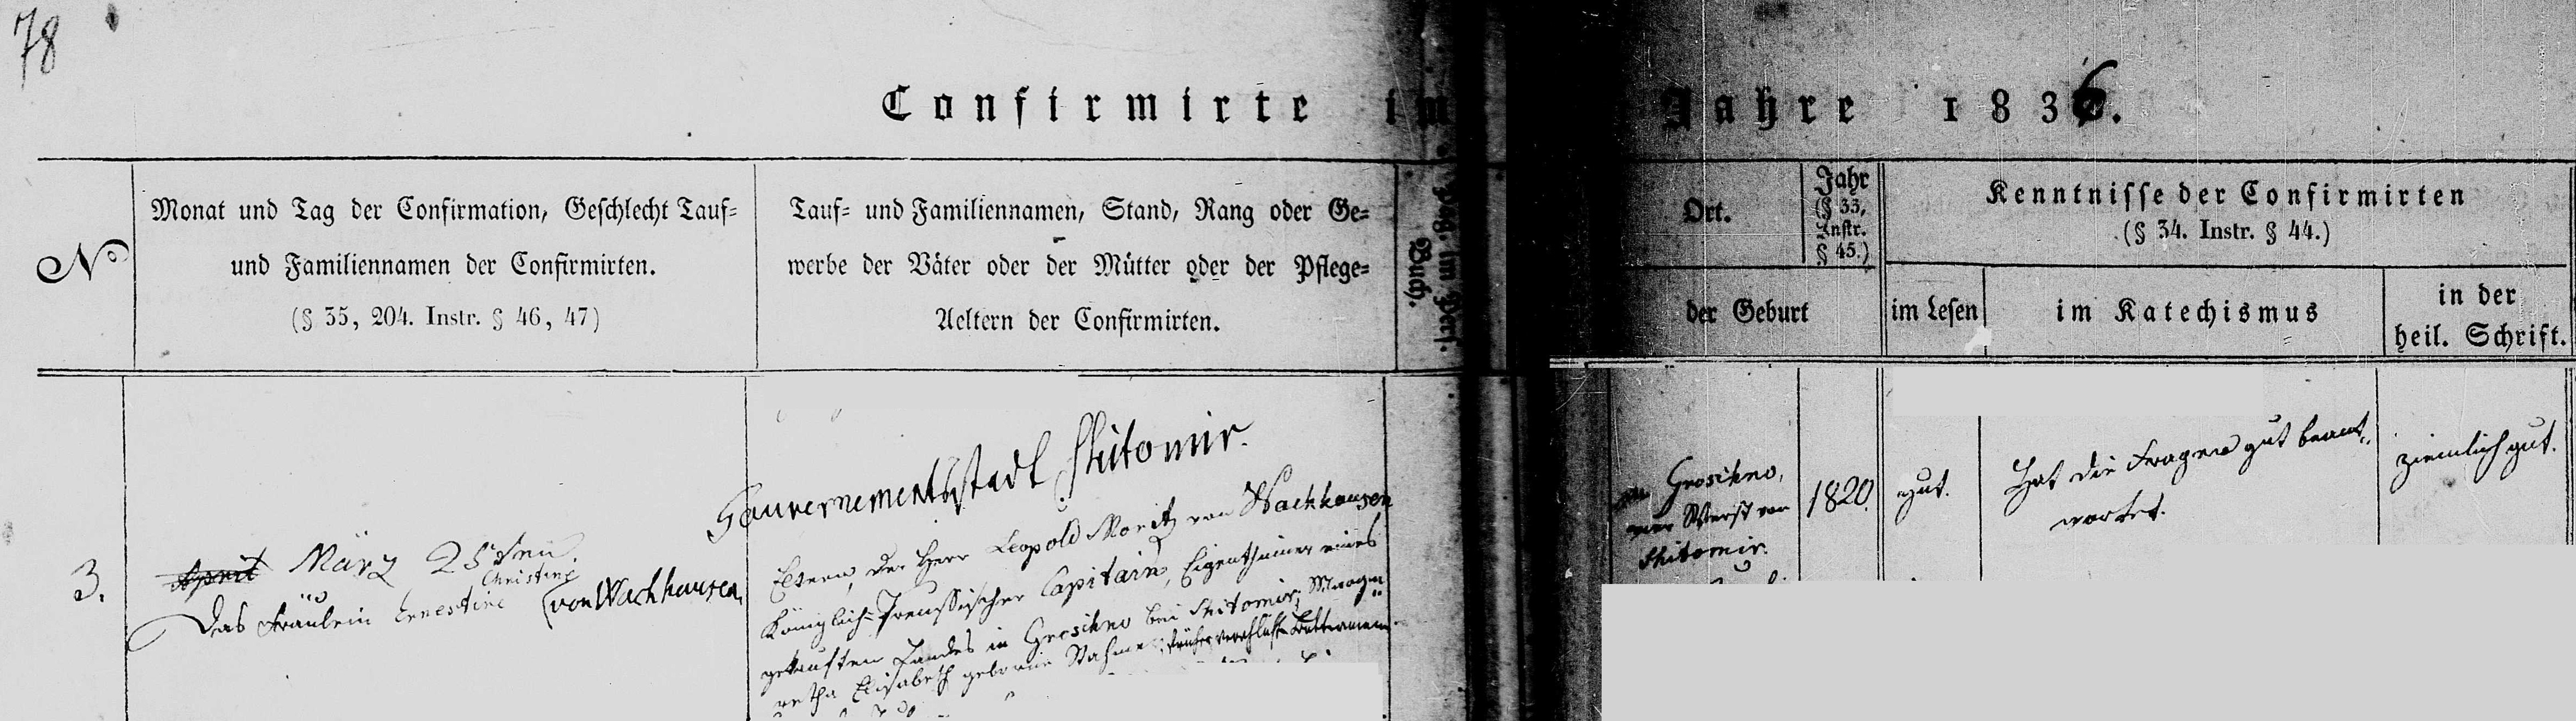 78
Confirmirte im Jahre 1836.
No
Monat und Tag der Confirmation, Geschlecht Tauf-
und Familiennamen der Confirmirten.
(§ 35, 204. Instr. § 46, 47)
Tauf- und Familiennamen, Stand, Rang oder Ge-
werbe der Väter oder der Mütter oder der Pflege-
Aeltern der Confirmirten.
pag. im Pers.
Buch.
Ort.
Jahr
(§ 33,
Instr.
§ 45.)
der Geburt
Kenntnisse der Confirmirten
(§ 34. Instr. § 44.)
im Lesen
im Katechismus
in der
heil. Schrift.
Gouvernementsstadt Shitomir.
3.
April März 25sten
Christine
Das Fräulein Ernestine von Wachhausen,
Eltern, der Herr Leopold Moritz von Wachhausen
Königlich-Preussischer Capitain, Eigenthümer eines
gekauften Landes in Groschno bei Shitomir; Marga-
retha Elisabeth geborene Rahme, früher verehlichte
Groschno,
Werst von
Shitomir.
1820.
gut.
Hat die Fragen gut beant-
wortet.
ziemlich gut.